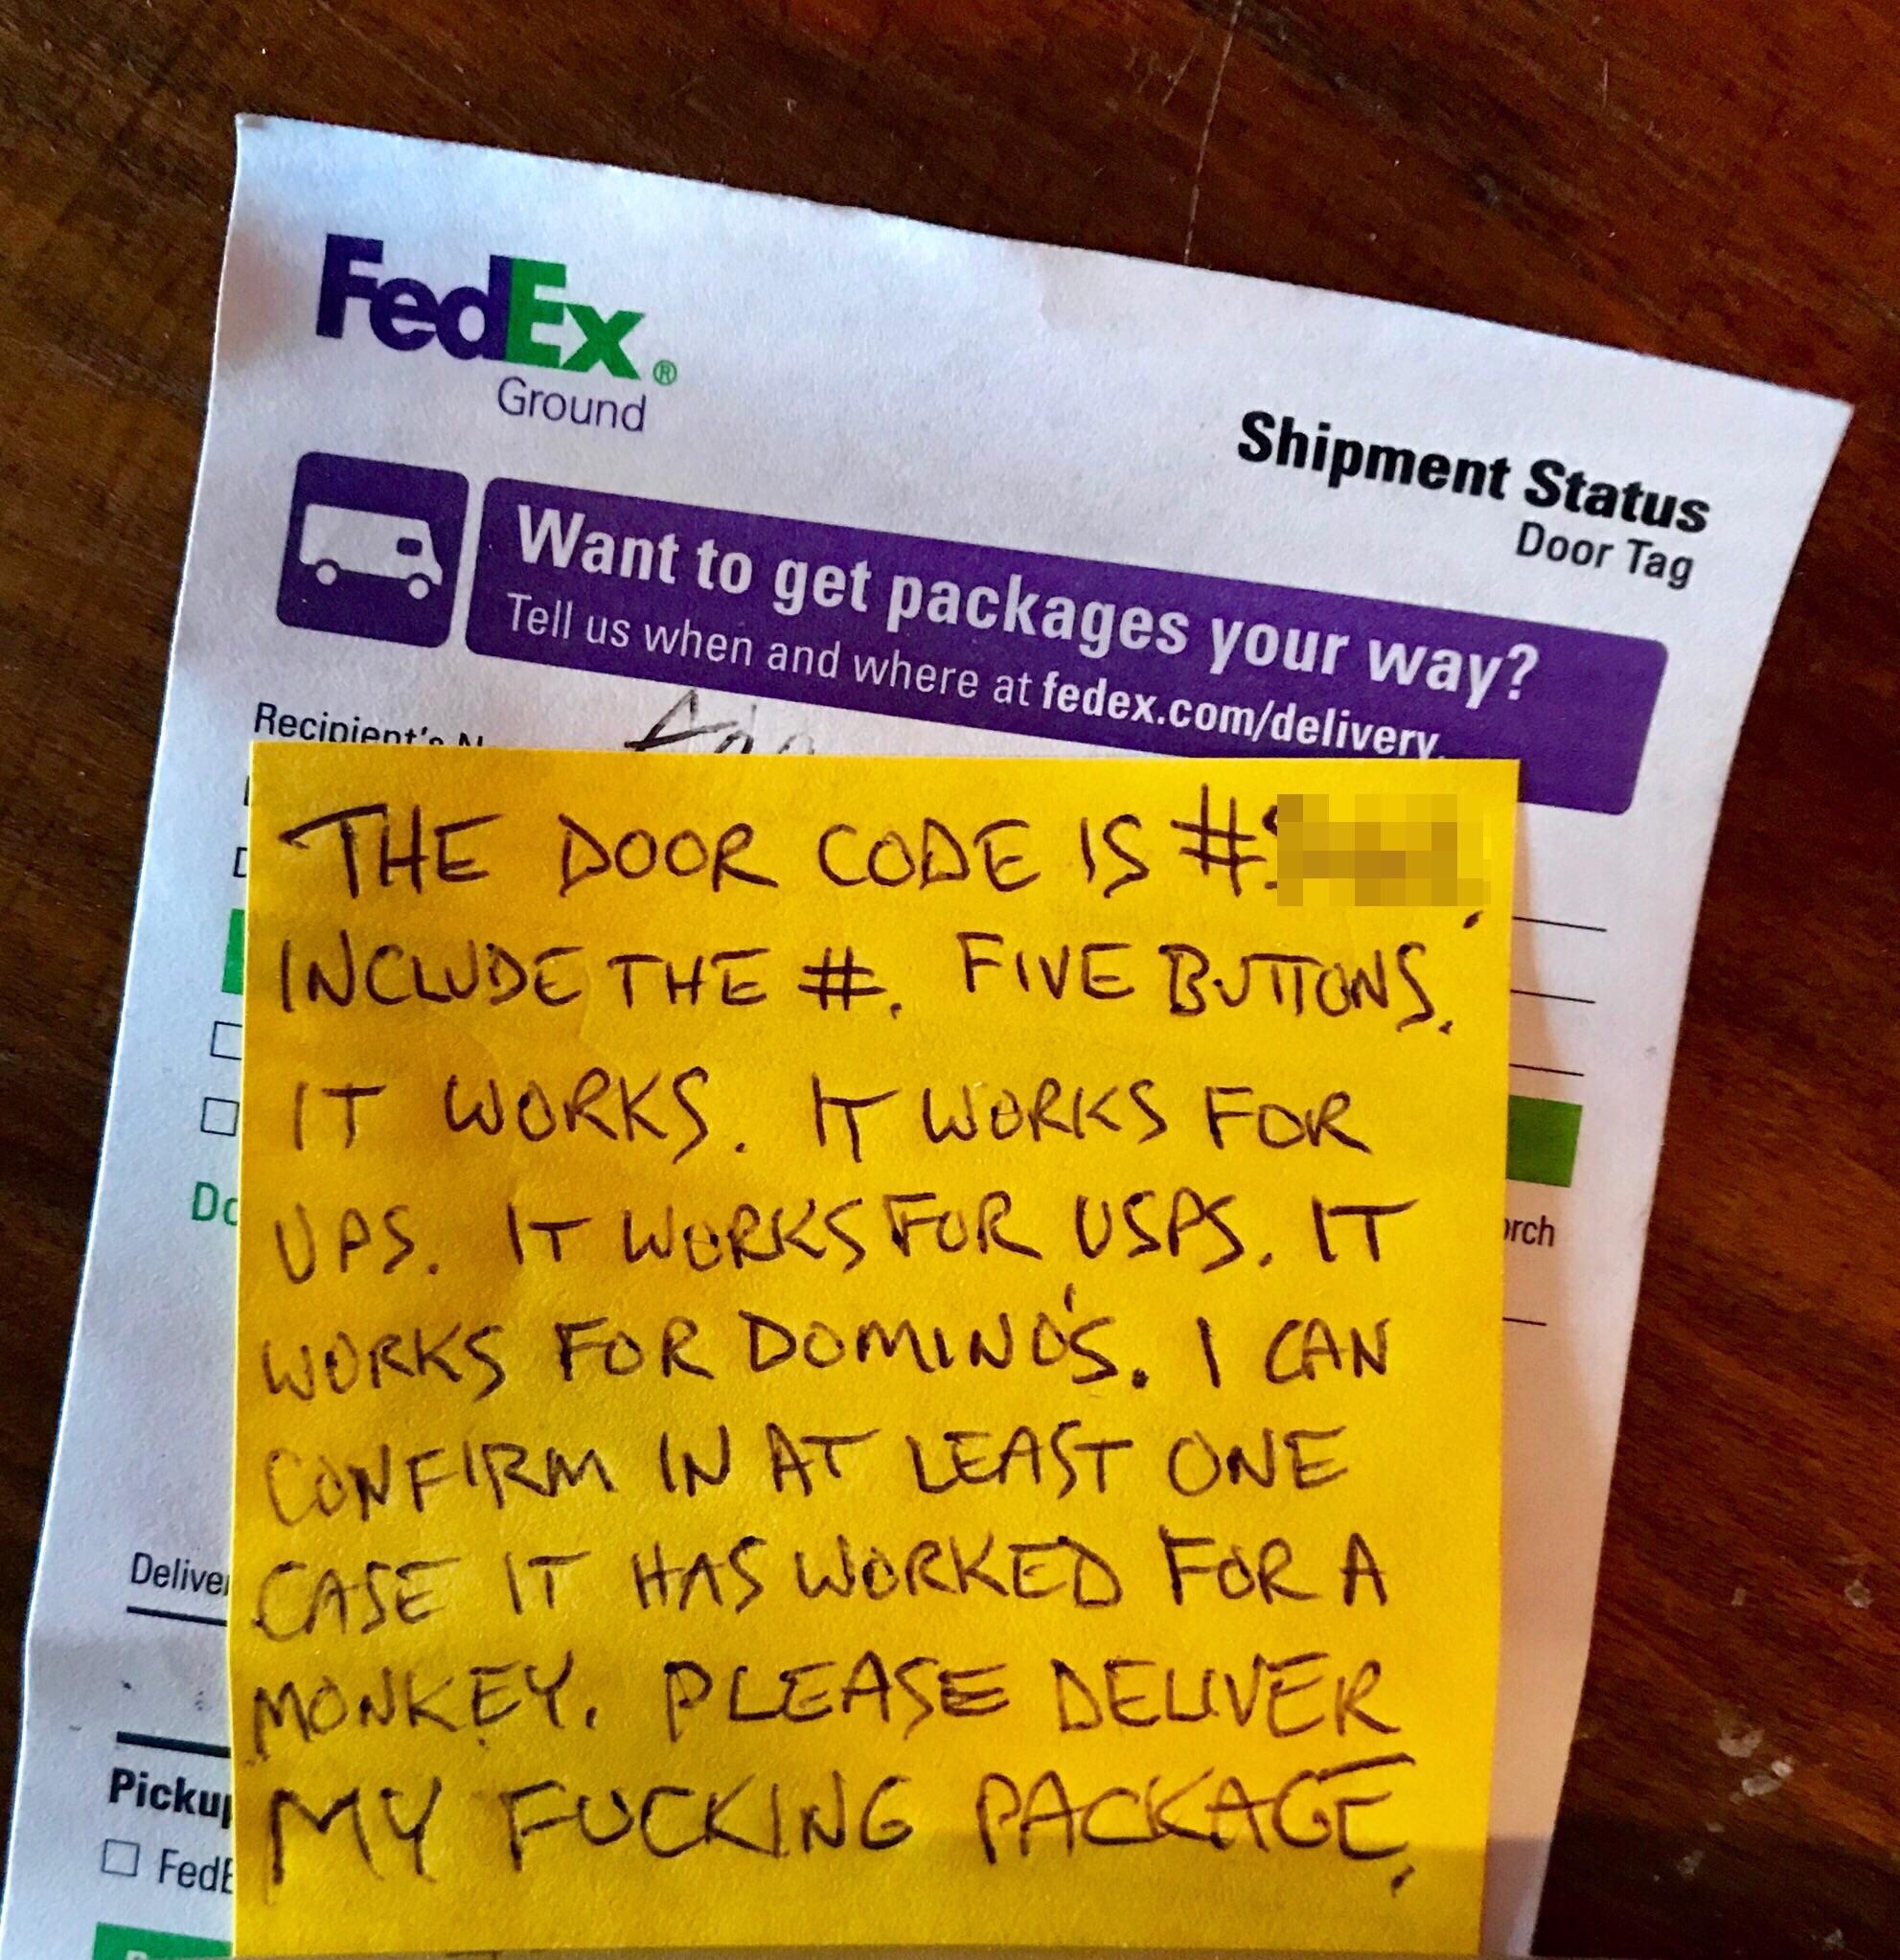 FedEx®
Ground
Shipment Status
Door Tag
Want to get packages your way?
Tell us when and where at fedex.com/delivery.
Recipient's
THE DOOR CODE IS #
INCLUDE THE #. FIVE BUTTONS.
IT WORKS. IT WORKS FOR
UPS. IT WORKS FOR USPS. IT
WORKS FOR DOMINO'S. I CAN
CONFIRM IN AT LEAST ONE
CASE IT HAS WORKED FOR A
MONKEY. PLEASE DELIVER
MY FUCKING PACKAGE.